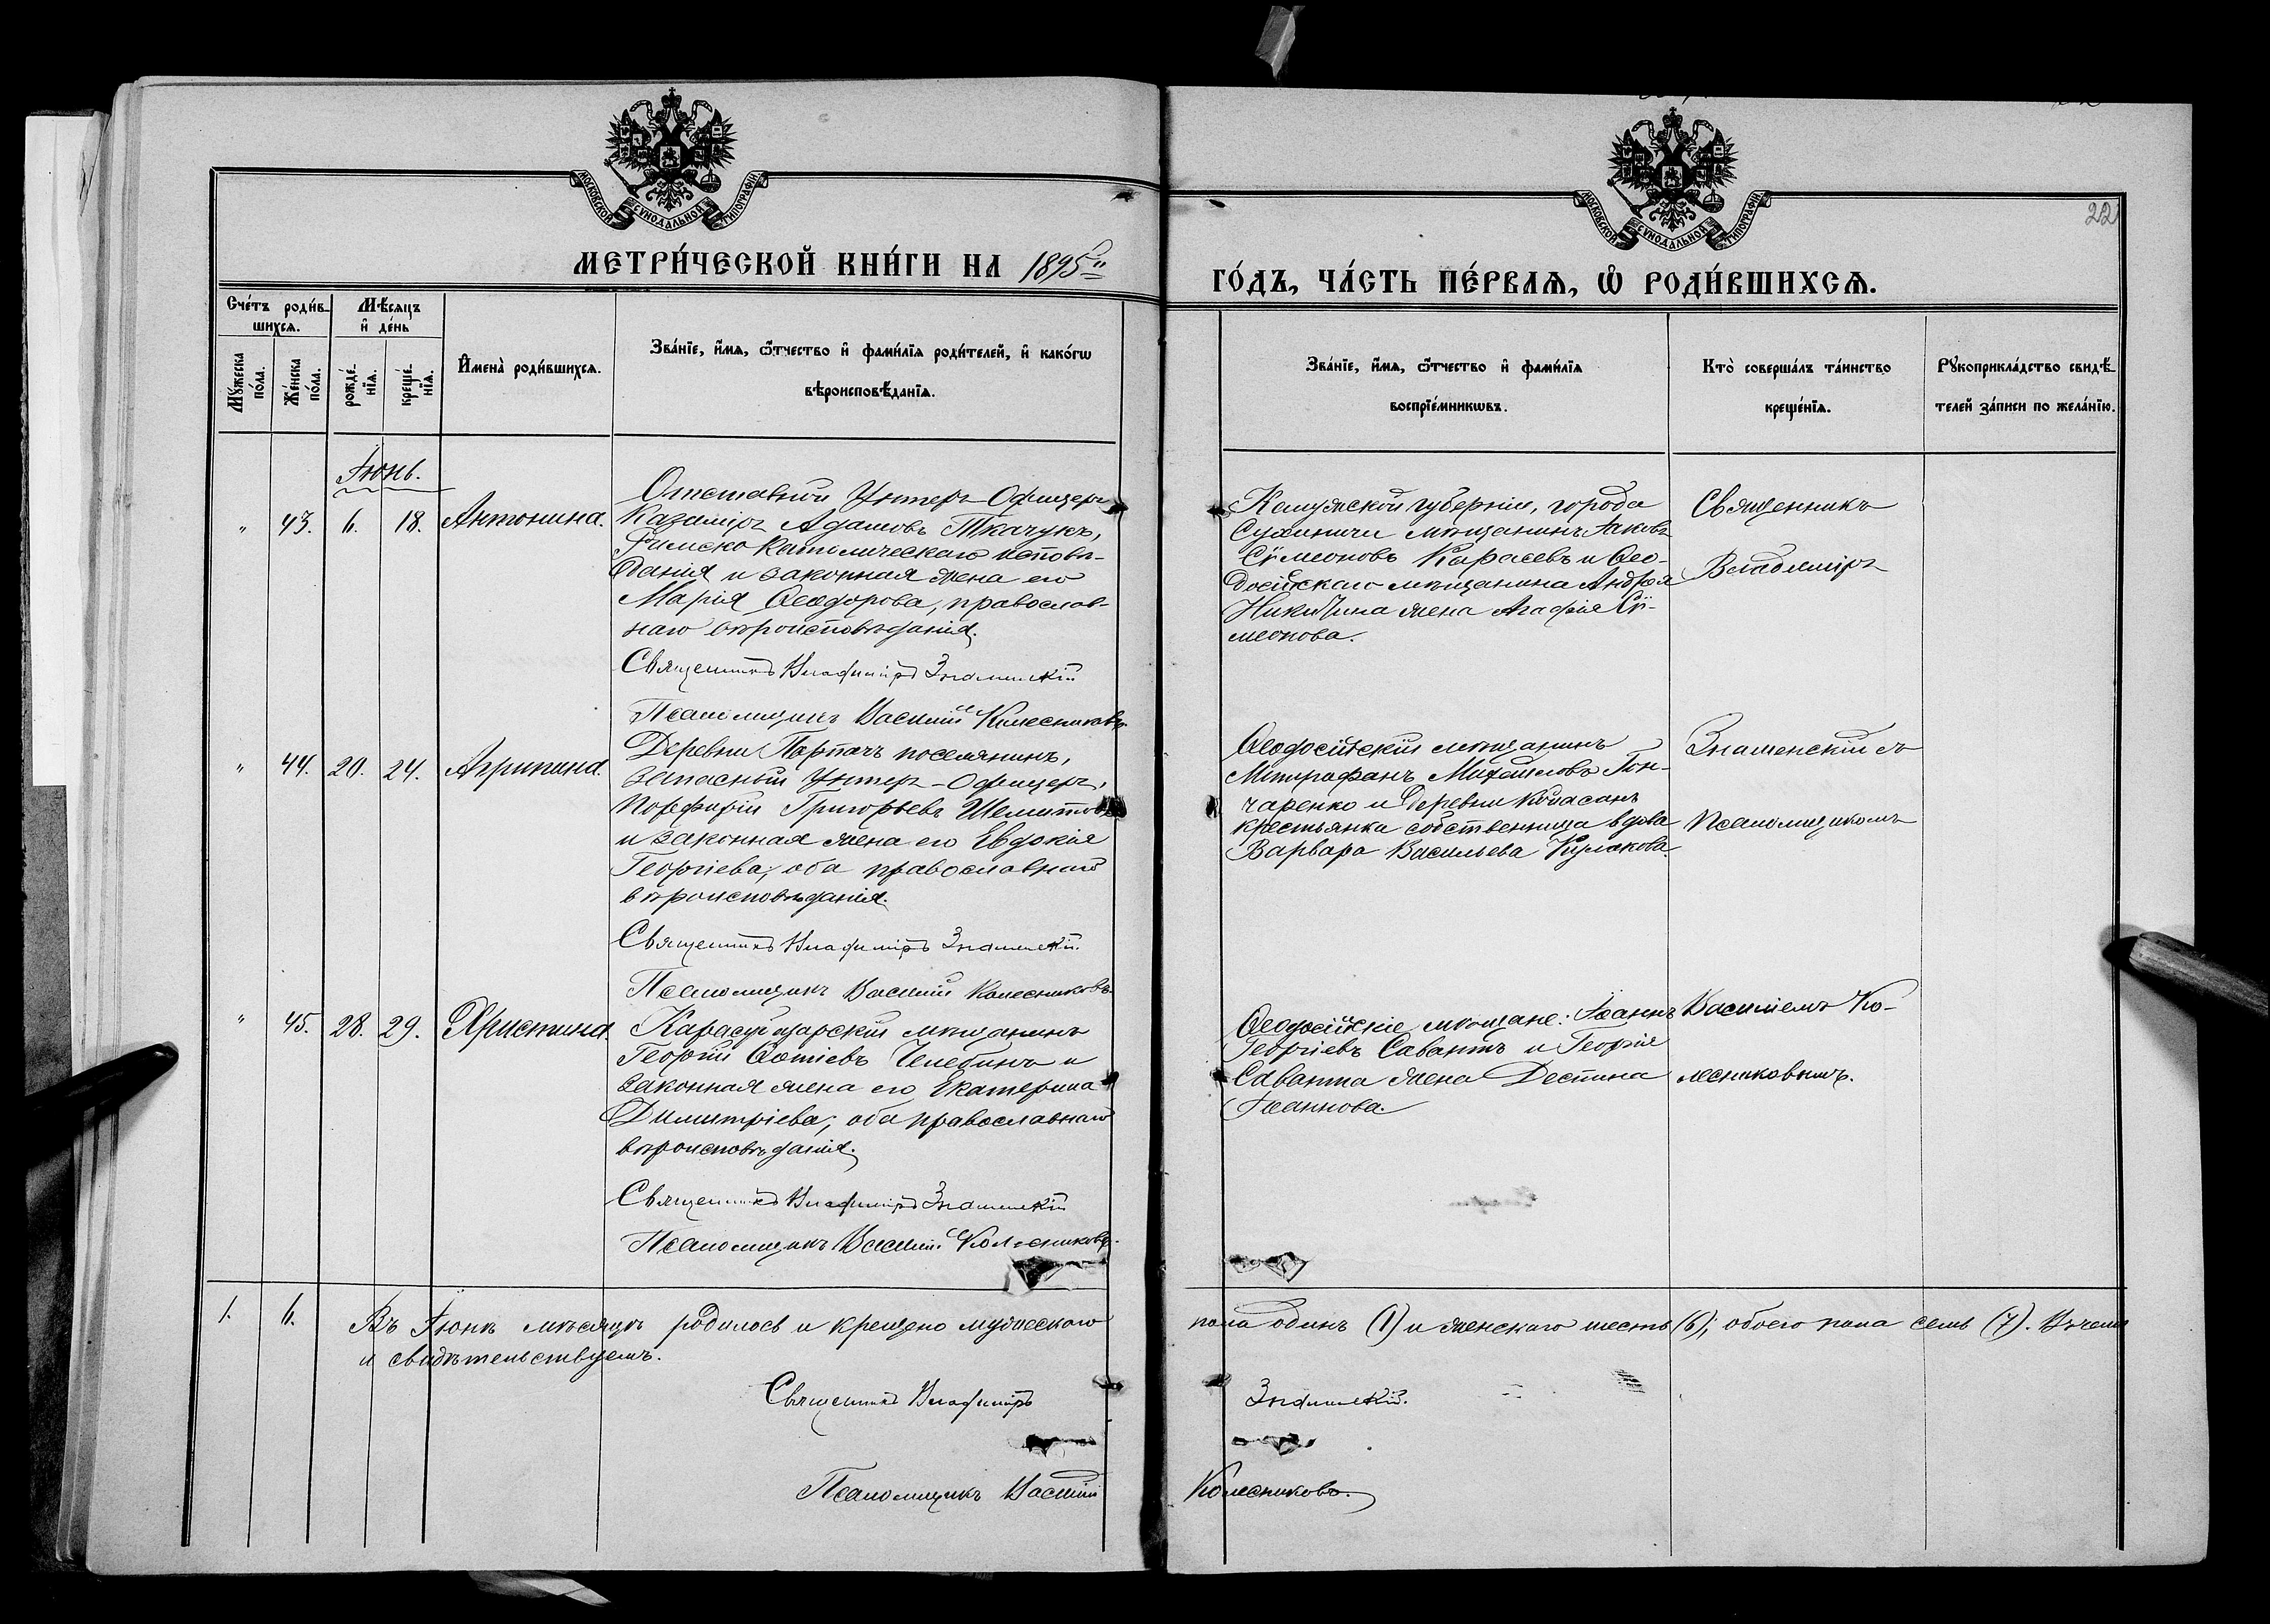 22
МОСКОВСКОЙ СѴНОДАЛЬНОЙ ТИПОГРАФІИ
МОСКОВСКОЙ СѴНОДАЛЬНОЙ ТИПОГРАФІИ
МЕТРИ́ЧЕСКОЙ КНИ́ГИ НА 1895й
ГО́ДЪ, ЧА́СТЬ ПЕ́РВАѦ, Ѡ҆ РОДИ́ВШИХСѦ.
Сче́тъ роди́в-
шихсѧ.
Мѣ́сѧцъ
и҆ де́нь
Мꙋ́жеска
по́ла.
Же́нска
по́ла.
рожде́-
нїѧ.
креще́-
нїѧ.
И҆мена̀ роди́вшихсѧ.
Зва́нїе, и҆́мѧ, ѻ҆́тчество и҆ фами́лїѧ роди́телей, и҆ како́гѡ
вѣроисповѣ́данїѧ.
Зва́нїе, и҆́мѧ, ѻ҆́тчество и҆ фами́лїѧ
воспрїе́мникѡвъ.
Кто̀ соверша́лъ та́инство
креще́нїѧ.
Рꙋкоприкла́дство свидѣ́-
телей за́писи по жела́нїю.
Іюнь.
" 43. 6. 18. Антонина.
Отставной Унтеръ-Офицеръ
Казиміръ Адамовъ Ткачукъ,
Римско Католическаго исповѣ-
данія и законная жена его
Марія Ѳеодорова, православ-
наго вѣроисповѣданія.
Священникъ Владиміръ Знаменскій
Псаломщикъ Василій Колесниковъ.
Калужской губерніи, города
Сухиничи мѣщанинъ Іаковъ
Сѵмеоновъ Карасевъ и Ѳео-
досійскаго мѣщанина Андрея
Никитина жена Агафія Сѵ-
меонова.
Священникъ
Владиміръ
" 44. 20. 24. Агрипина.
Деревни Парпачъ поселянинъ,
запасный Унтеръ-Офицеръ,
Порфирій Григорьевъ
и законная жена его Евдокія
Георгіева, оба православнаго
вѣроисповѣданія.
Священникъ Владиміръ Знаменскій.
Псаломщикъ Василій Колесниковъ.
Ѳеодосійскій мѣщанинъ
Митрофанъ Михаиловъ Гон-
чаренко и деревни
крестьянка собственница вдова
Варвара Васильева Кулакова.
Знаменскій съ
Псаломщикомъ
" 45. 28. 29. Христина.
Карасубазарскій мѣщанинъ
Георгій Фотіевъ Челебинъ и
законная жена его Екатерина
Димитріева, оба православнаго
вѣроисповѣданія.
Священникъ Владиміръ Знаменскій
Псаломщикъ Василій Колесниковъ.
Ѳеодосійскіе мѣщане: Іоаннъ
Георгіевъ Савантъ и Георгія
Саванта жена Деспина
Іоаннова.
Василіемъ Ко-
лесниковымъ.
1. 6. Въ Іюнѣ мѣсяцѣ родилось и крещено мужескаго пола одинъ (1) и женскаго шесть (6); обоего пола семь (7). Въ чемъ
и свидѣтельствуемъ.
Священникъ Владиміръ Знаменскій.
Псаломщикъ Василій Колесниковъ.